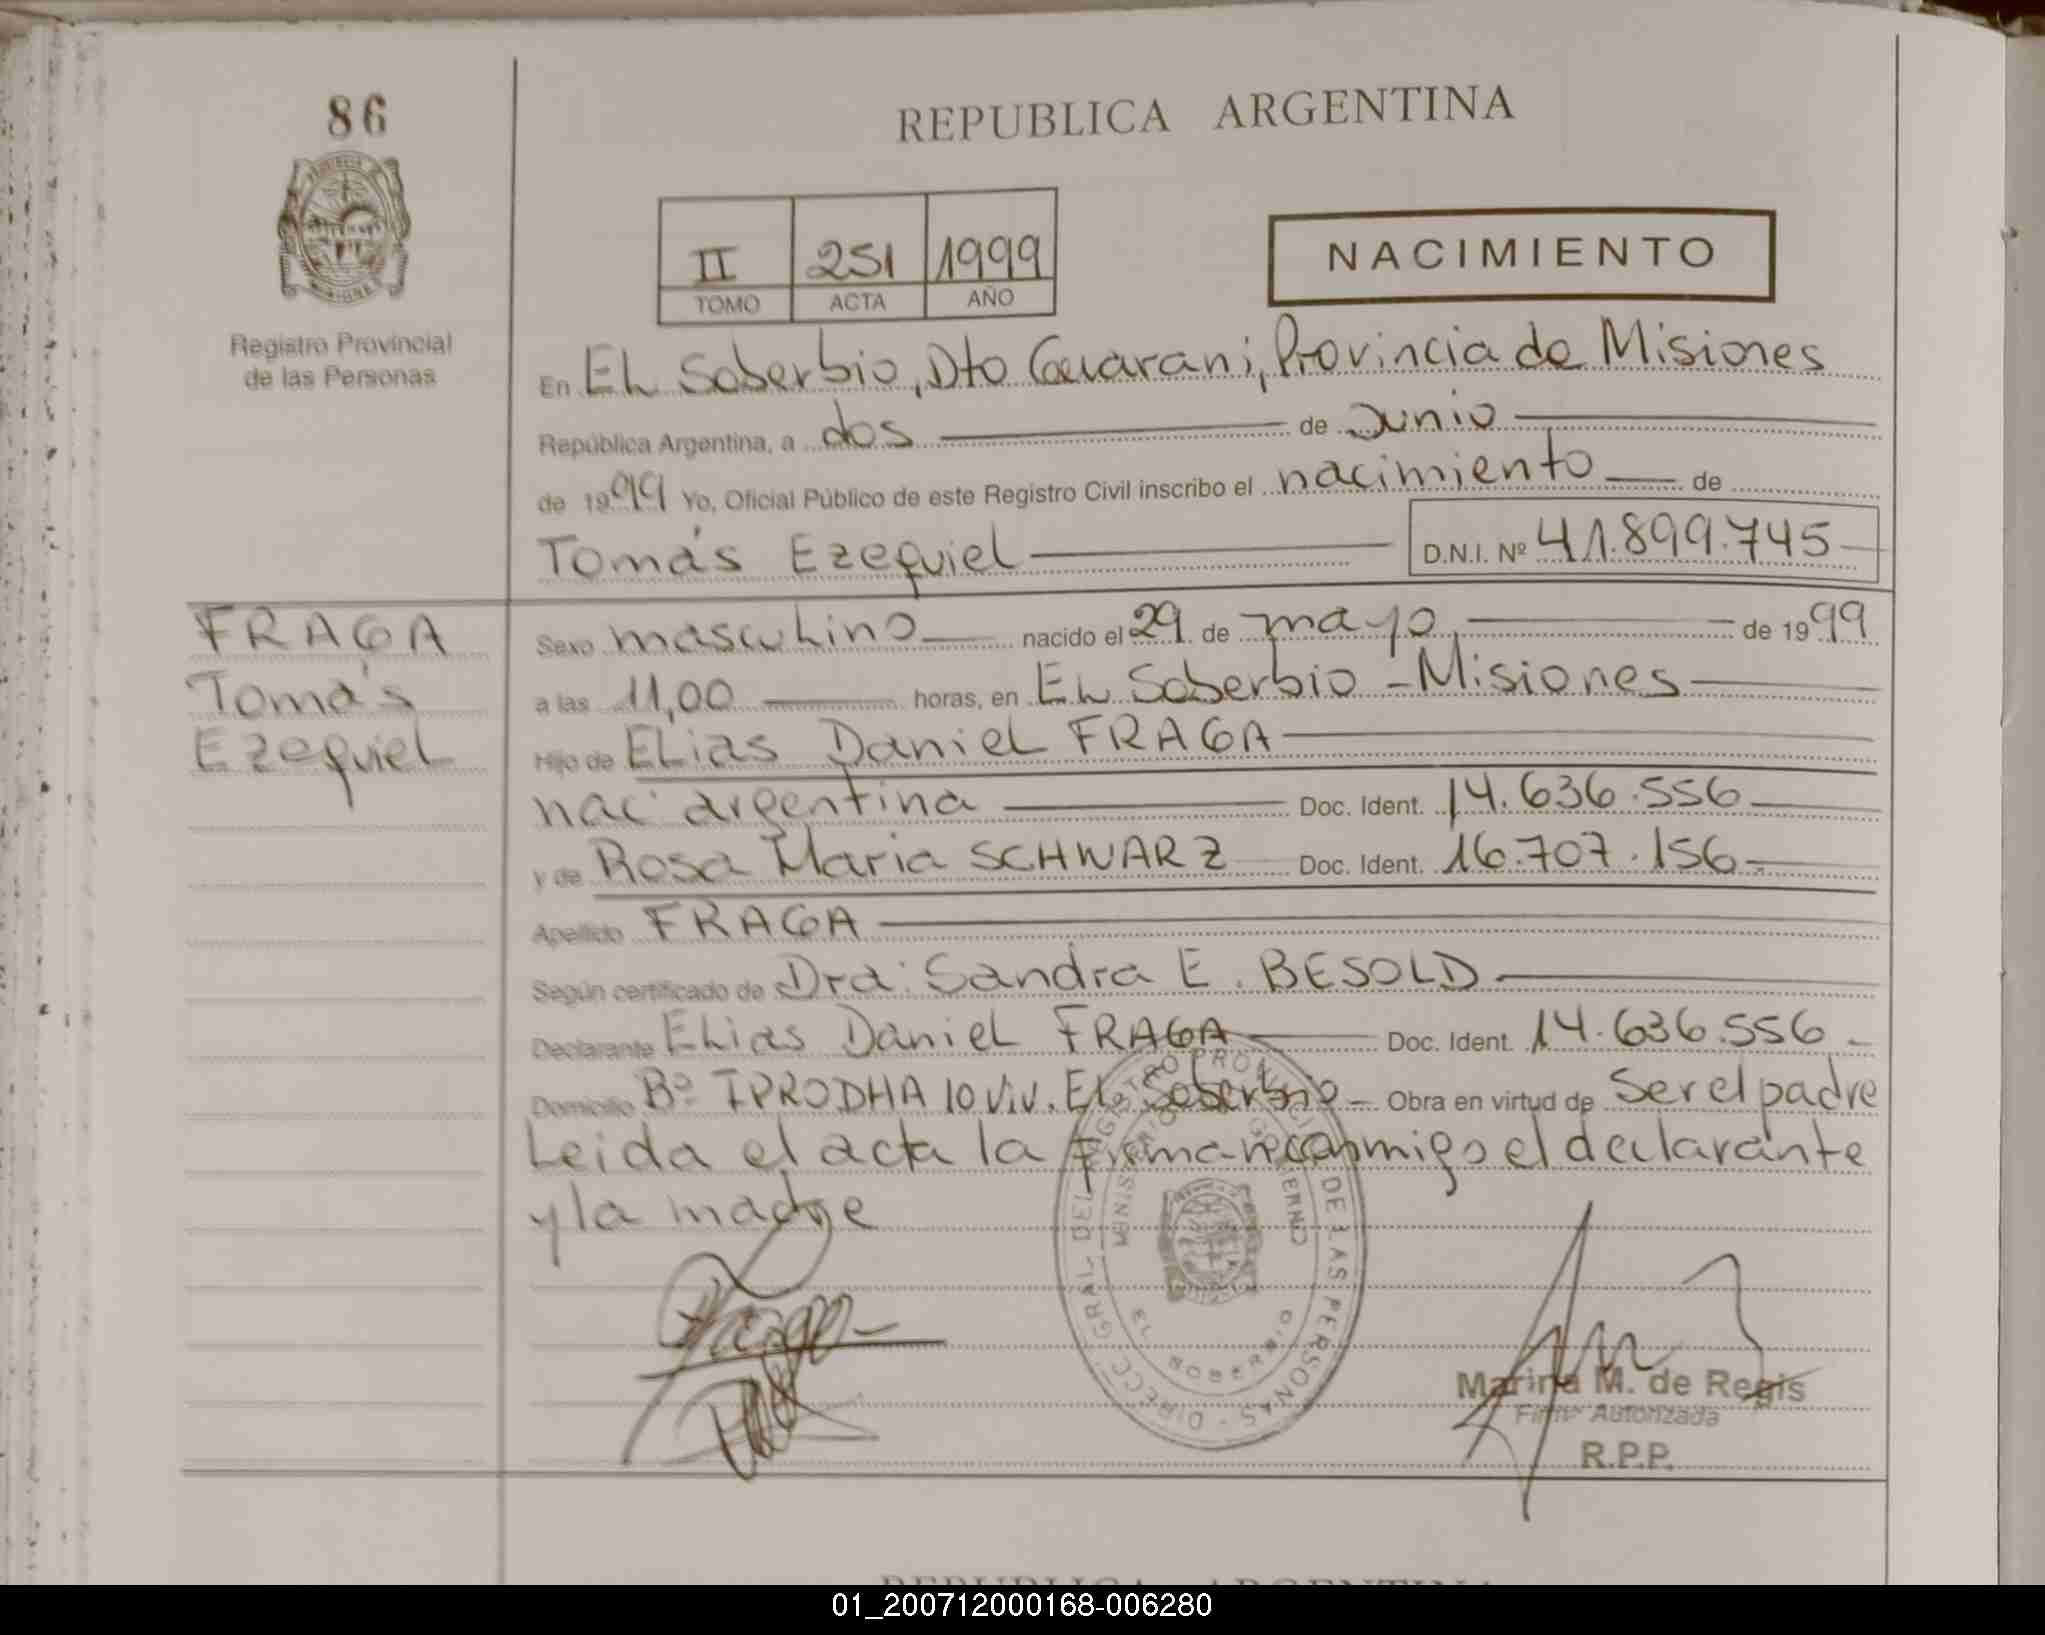 86
REPUBLICA ARGENTINA
II 251 1999
TOMO ACTA AÑO
NACIMIENTO
Registro Provincial
de las Personas
En EL Soberbio, Dto Guarani, Provincia de Misiones
República Argentina, a dos de Junio
de 1999 Yo, Oficial Público de este Registro Civil inscribo el nacimiento de
Tomás Ezequiel D.N.I. Nº 41.899.745
FRAGA
Tomás
Ezequiel
Sexo mascuLino nacido el 29 de mayo, de 1999
a las 11,00 horas, en EL Soberbio - Misiones
Hijo de ELias DanieL FRAGA
nac. argentina Doc. Ident. 14.636.556
y de Rosa Maria SCHWARZ Doc. Ident. 16.707.156
Apellido FRAGA
Según certificado de Dra. Sandra E. BESOLD
Declarante ELias DanieL FRAGA Doc. Ident. 14.636.556
Domicilio Bº IPRODHA 10 Viv. EL Soberbio - Obra en virtud de ser el padre
Leida el acta la firman conmigo el declarante
y la madre
DIRECC. GRAL. DEL REGISTRO PROVINCIAL DE LAS PERSONAS
MINISTERIO GOBIERNO
EL SOBERBIO
Marina M. de Regis
Firma Autorizada
R.P.P.
REPUBLICA ARGENTINA
01_200712000168-006280